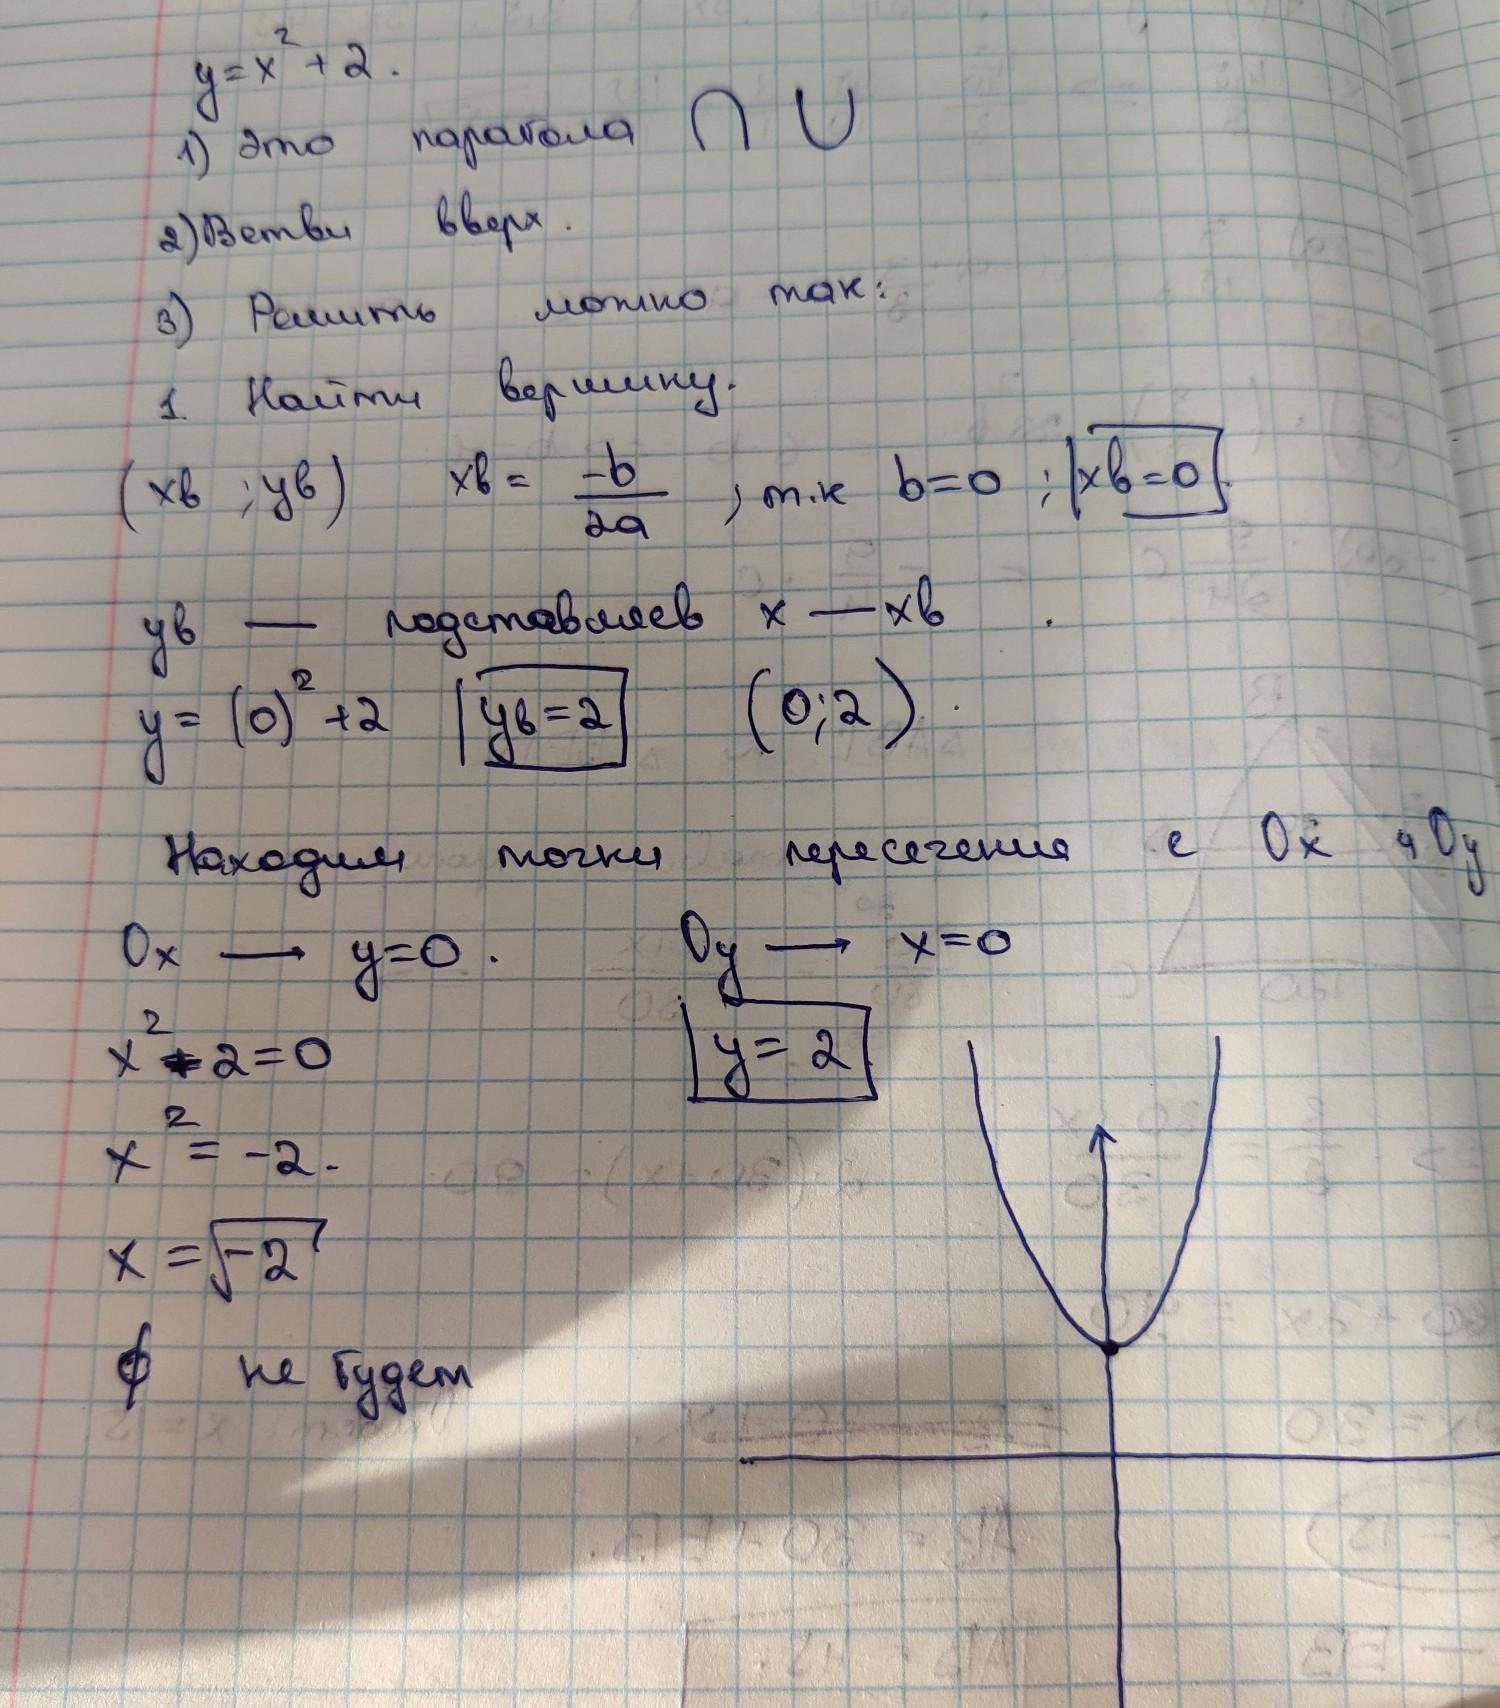 y=x²+2.
1) Это парабола
2) Ветви вверх.
3) Решить можно так:
1. Найти вершину.
(xв ; yв) xв = -b/2a ; т.к b=0 ; xв=0.
yв — подставляев x — xв.
y = (0)²+2 yв=2 (0;2).
Находим точки пересечения с Ox и Oy
Ox → y=0. Oy → x=0
x²+2=0 y=2
x²=-2.
x=√-2
∅ не будет